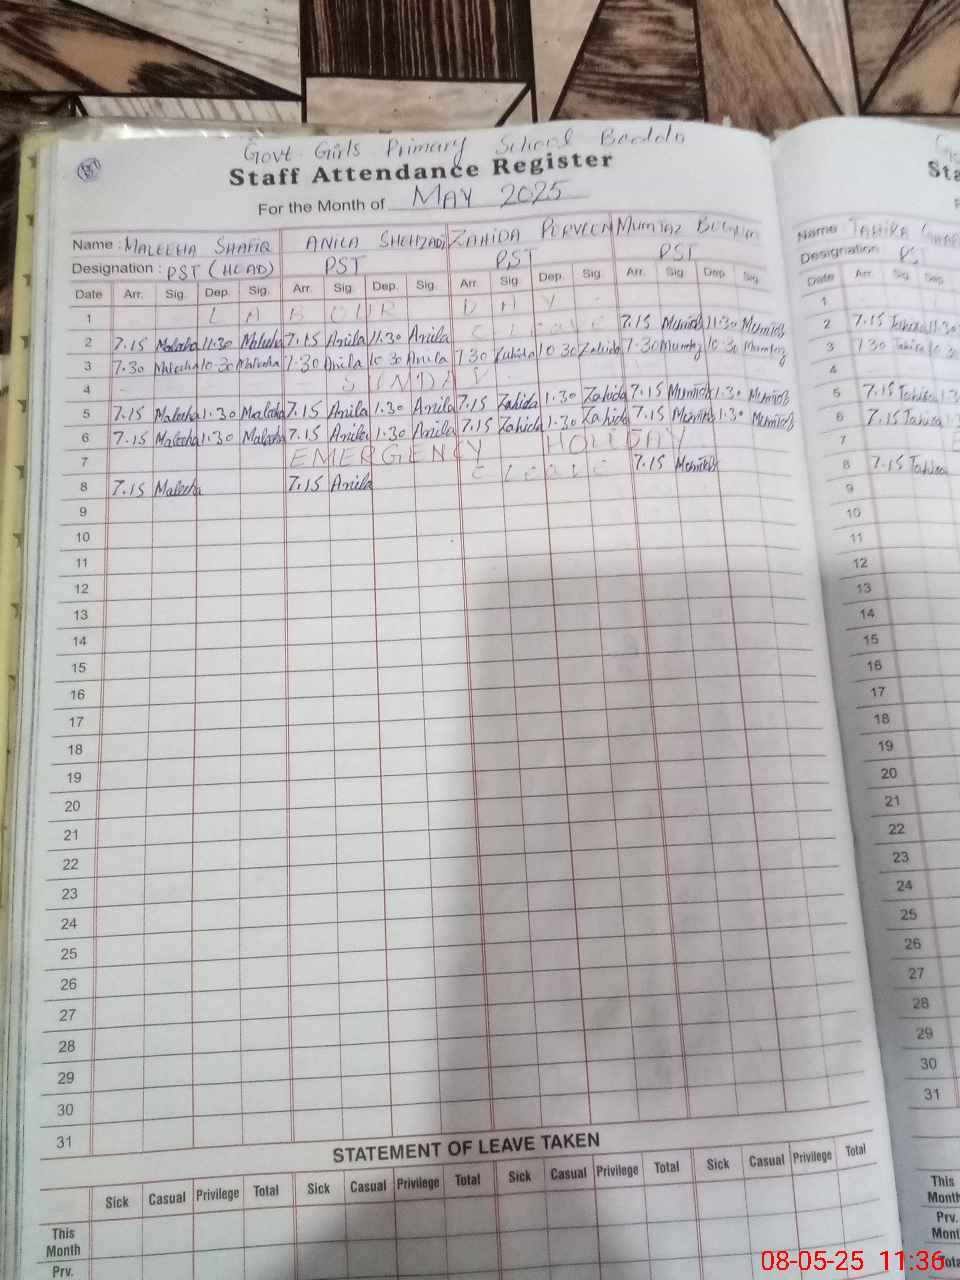 Govt. Girls Primary School
Staff Attendance Register
For the Month of MAY 2025
Name : MALEEHA SHAFIQ ANILA SHEHZADI ZAHIDA PERVEEN MUMTAZ BEGUM
Designation : PST (HEAD) PST PST PST
Date Arr. Sig. Dep. Sig. Arr. Sig. Dep. Sig. Arr. Sig. Dep. Sig. Arr. Sig. Dep. Sig.
1 LABOUR DAY
2 7.15 Maleeha 11:30 Maleeha 7.15 Anila 11.30 Anila C Leave 7.15 Mumtaz 11.30 Mumtaz
3 7.30 Maleeha 10:30 Maleeha 7.30 Anila 10:30 Anila 7.30 Zahida 10:30 Zahida 7.30 Mumtaz 10:30 Mumtaz
4 SUNDAY
5 7.15 Maleeha 1.30 Maleeha 7.15 Anila 1.30 Anila 7.15 Zahida 1.30 Zahida 7.15 Mumtaz 1.30 Mumtaz
6 7.15 Maleeha 1.30 Maleeha 7.15 Anila 1.30 Anila 7.15 Zahida 1.30 Zahida 7.15 Mumtaz 1.30 Mumtaz
7 EMERGENCY HOLIDAY
8 7.15 Maleeha 7.15 Anila C Leave 7.15 Mumtaz
9
10
11
12
13
14
15
16
17
18
19
20
21
22
23
24
25
26
27
28
29
30
31
STATEMENT OF LEAVE TAKEN
Sick Casual Privilege Total Sick Casual Privilege Total Sick Casual Privilege Total Sick Casual Privilege Total
This Month
Prv.
Sta
Name : TAHIRA
Designation PST
Date Arr. Sig. Dep.
1
2 7.15 Tahira 11.30
3 7.30 Tahira 10:30
4
5 7.15 Tahira
6 7.15 Tahira
7 E
8 7.15 Tahira
9
10
11
12
13
14
15
16
17
18
19
20
21
22
23
24
25
26
27
28
29
30
31
This Month
Prv. Mont
Tota
08-05-25 11:36